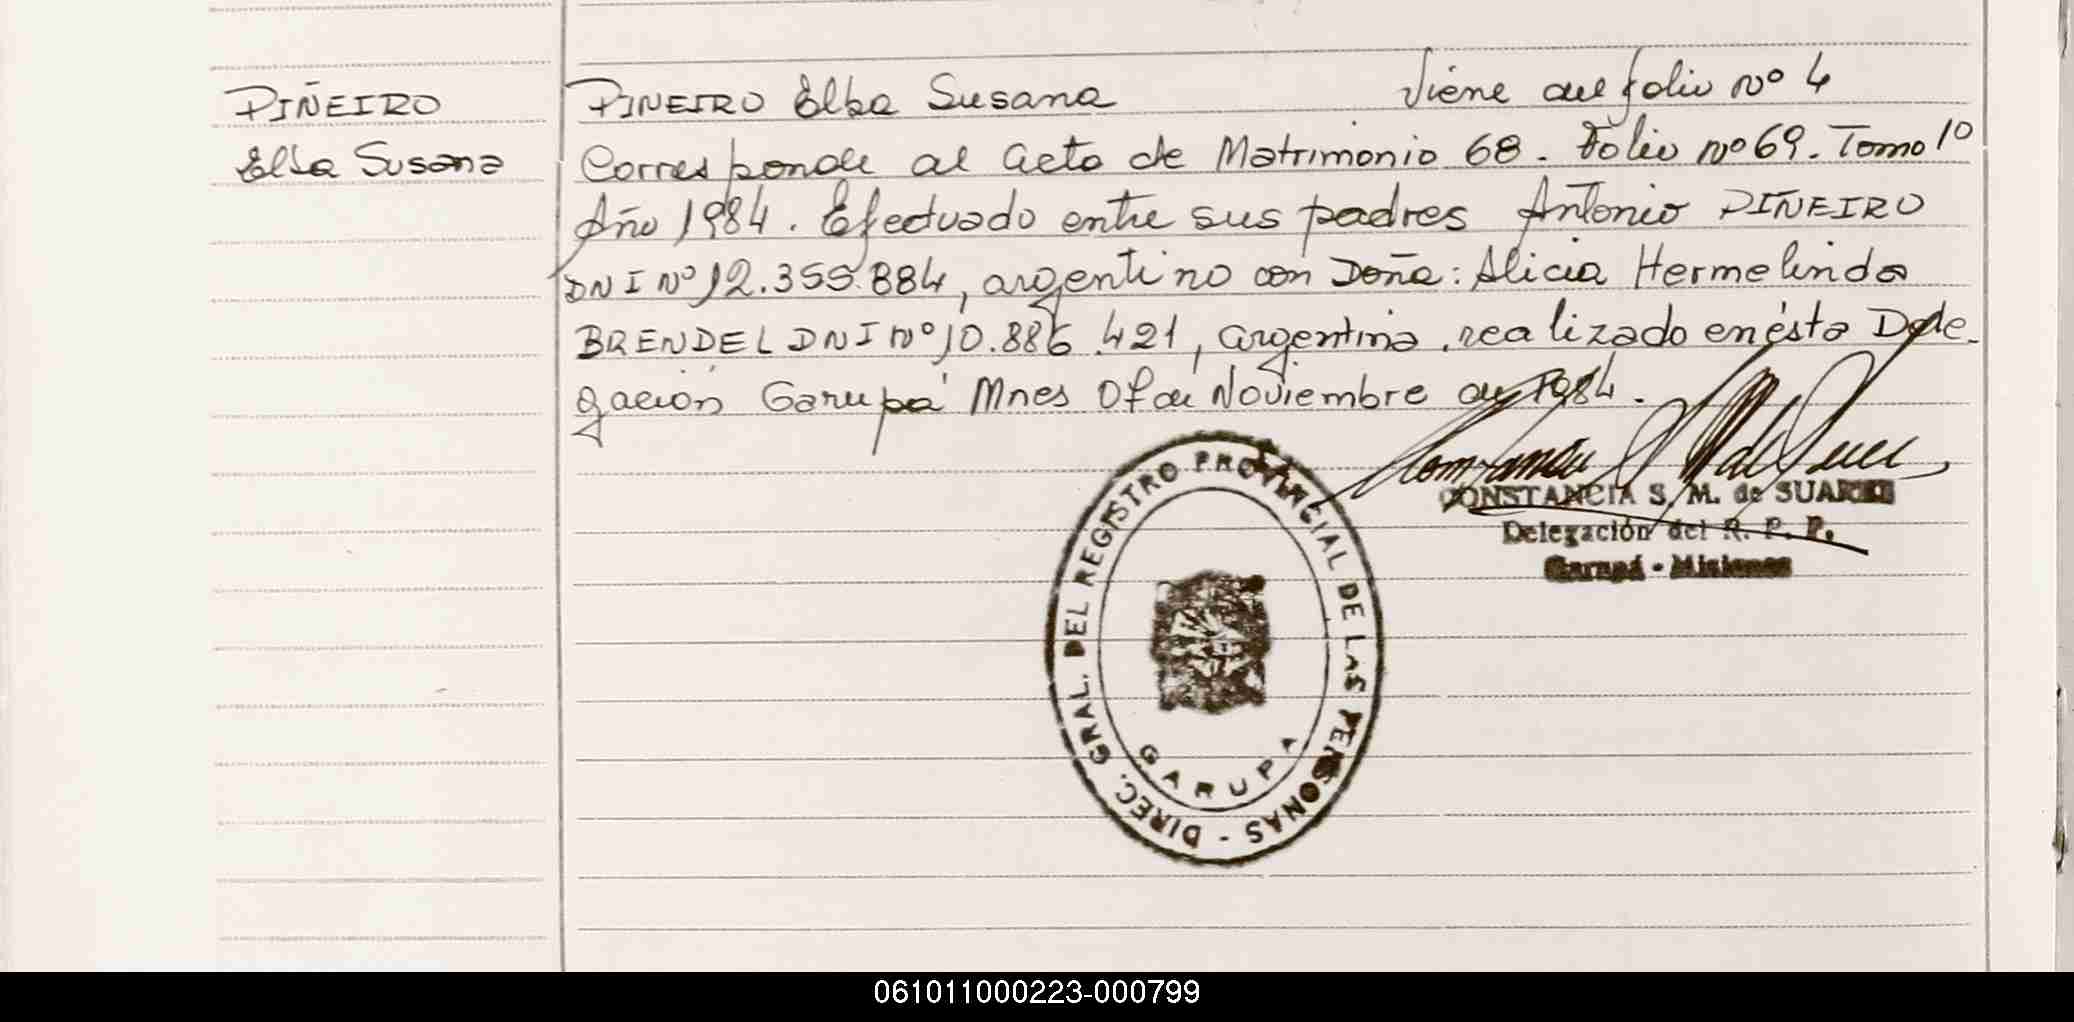 PIÑEIRO
Elba Susana
PINEIRO Elba Susana Viene del folio nº 4
Corresponde al acta de Matrimonio 68. Folio nº 69. Tomo 1º
Año 1984. Efectuado entre sus padres Antonio PIÑEIRO
DNI Nº 12.355.884, argentino con Doña: Alicia Hermelinda
BRENDEL DNI Nº 10.886.421, argentina, realizado en ésta Dele-
gación Garupá Mnes de Noviembre de 1984.
CONSTANCIA S. M. de SUAREZ
Delegación del R. P. P.
Garupá - Misiones
DIREC. GRAL. DEL REGISTRO PROVINCIAL DE LAS PERSONAS -
GARUPA
061011000223-000799